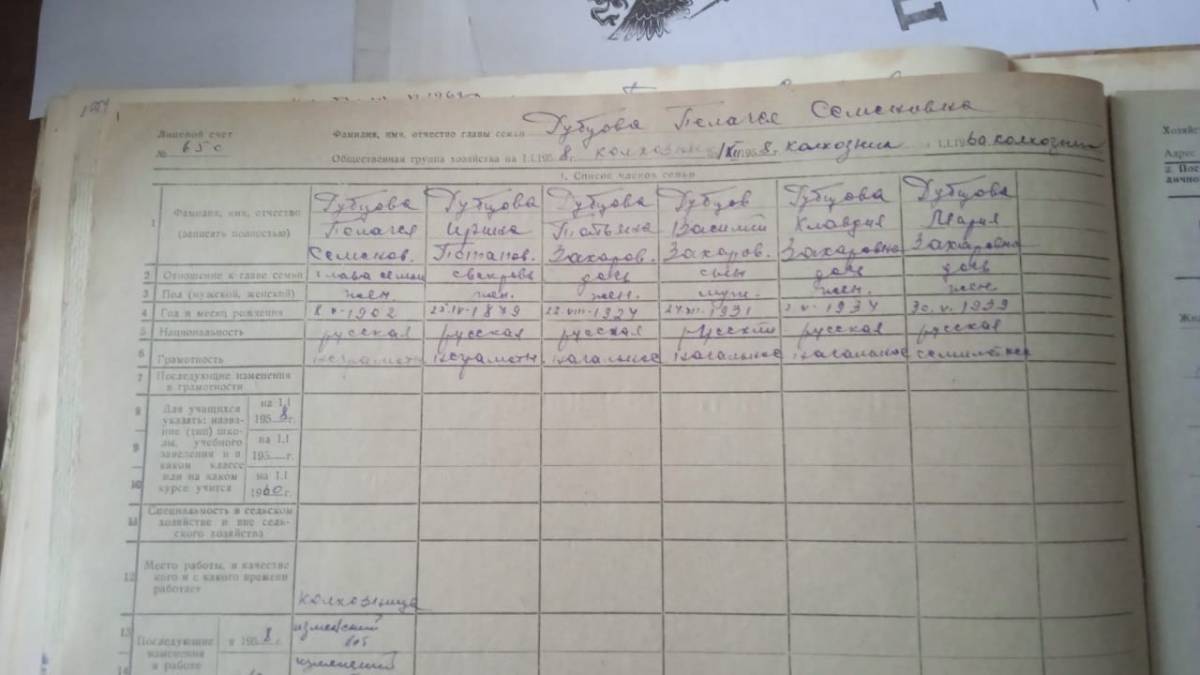 Лицевой счет
№ 650
Фамилия, имя, отчество главы семьи Дубцова Пелагея Семеновна
Общественная группа хозяйства на 1.I.1958 г. колхозник 1/XII 1958, колхозник 1.I.1960 колхозник
1. Список членов семьи
1 Фамилия, имя, отчество (записать полностью) Дубцова Пелагея Семенов. Дубцова Потапов. Дубцова Татьяна Захаров. Дубцов Василий Захаров. Дубцова Клавдия Захаровна Дубцова Мария Захаровна
2 Отношение к главе семьи глава семьи свекровь дочь сын дочь дочь
3 Пол (мужской, женский) жен. жен. жен. муж. жен. жен
4 Год и месяц рождения 1902 1879 1927 1931 1939
5 Национальность русская русская русская русский русская русская
6 Грамотность неграмотн. начальное начальное начальное
7 Последующие изменения в грамотности
8 Для учащихся указать: название (тип) школы, учебного заведения и в каком классе или на каком курсе учится на 1.I 1958 г.
9 на 1.I 195 г.
10 на 1.I 1960 г.
11 Специальность в сельском хозяйстве и вне сельского хозяйства
12 Место работы, в качестве кого и с какого времени работает колхозница
13 Последующие изменения в работе в 1958
14
Хозяйст
Адрес
2. Пос